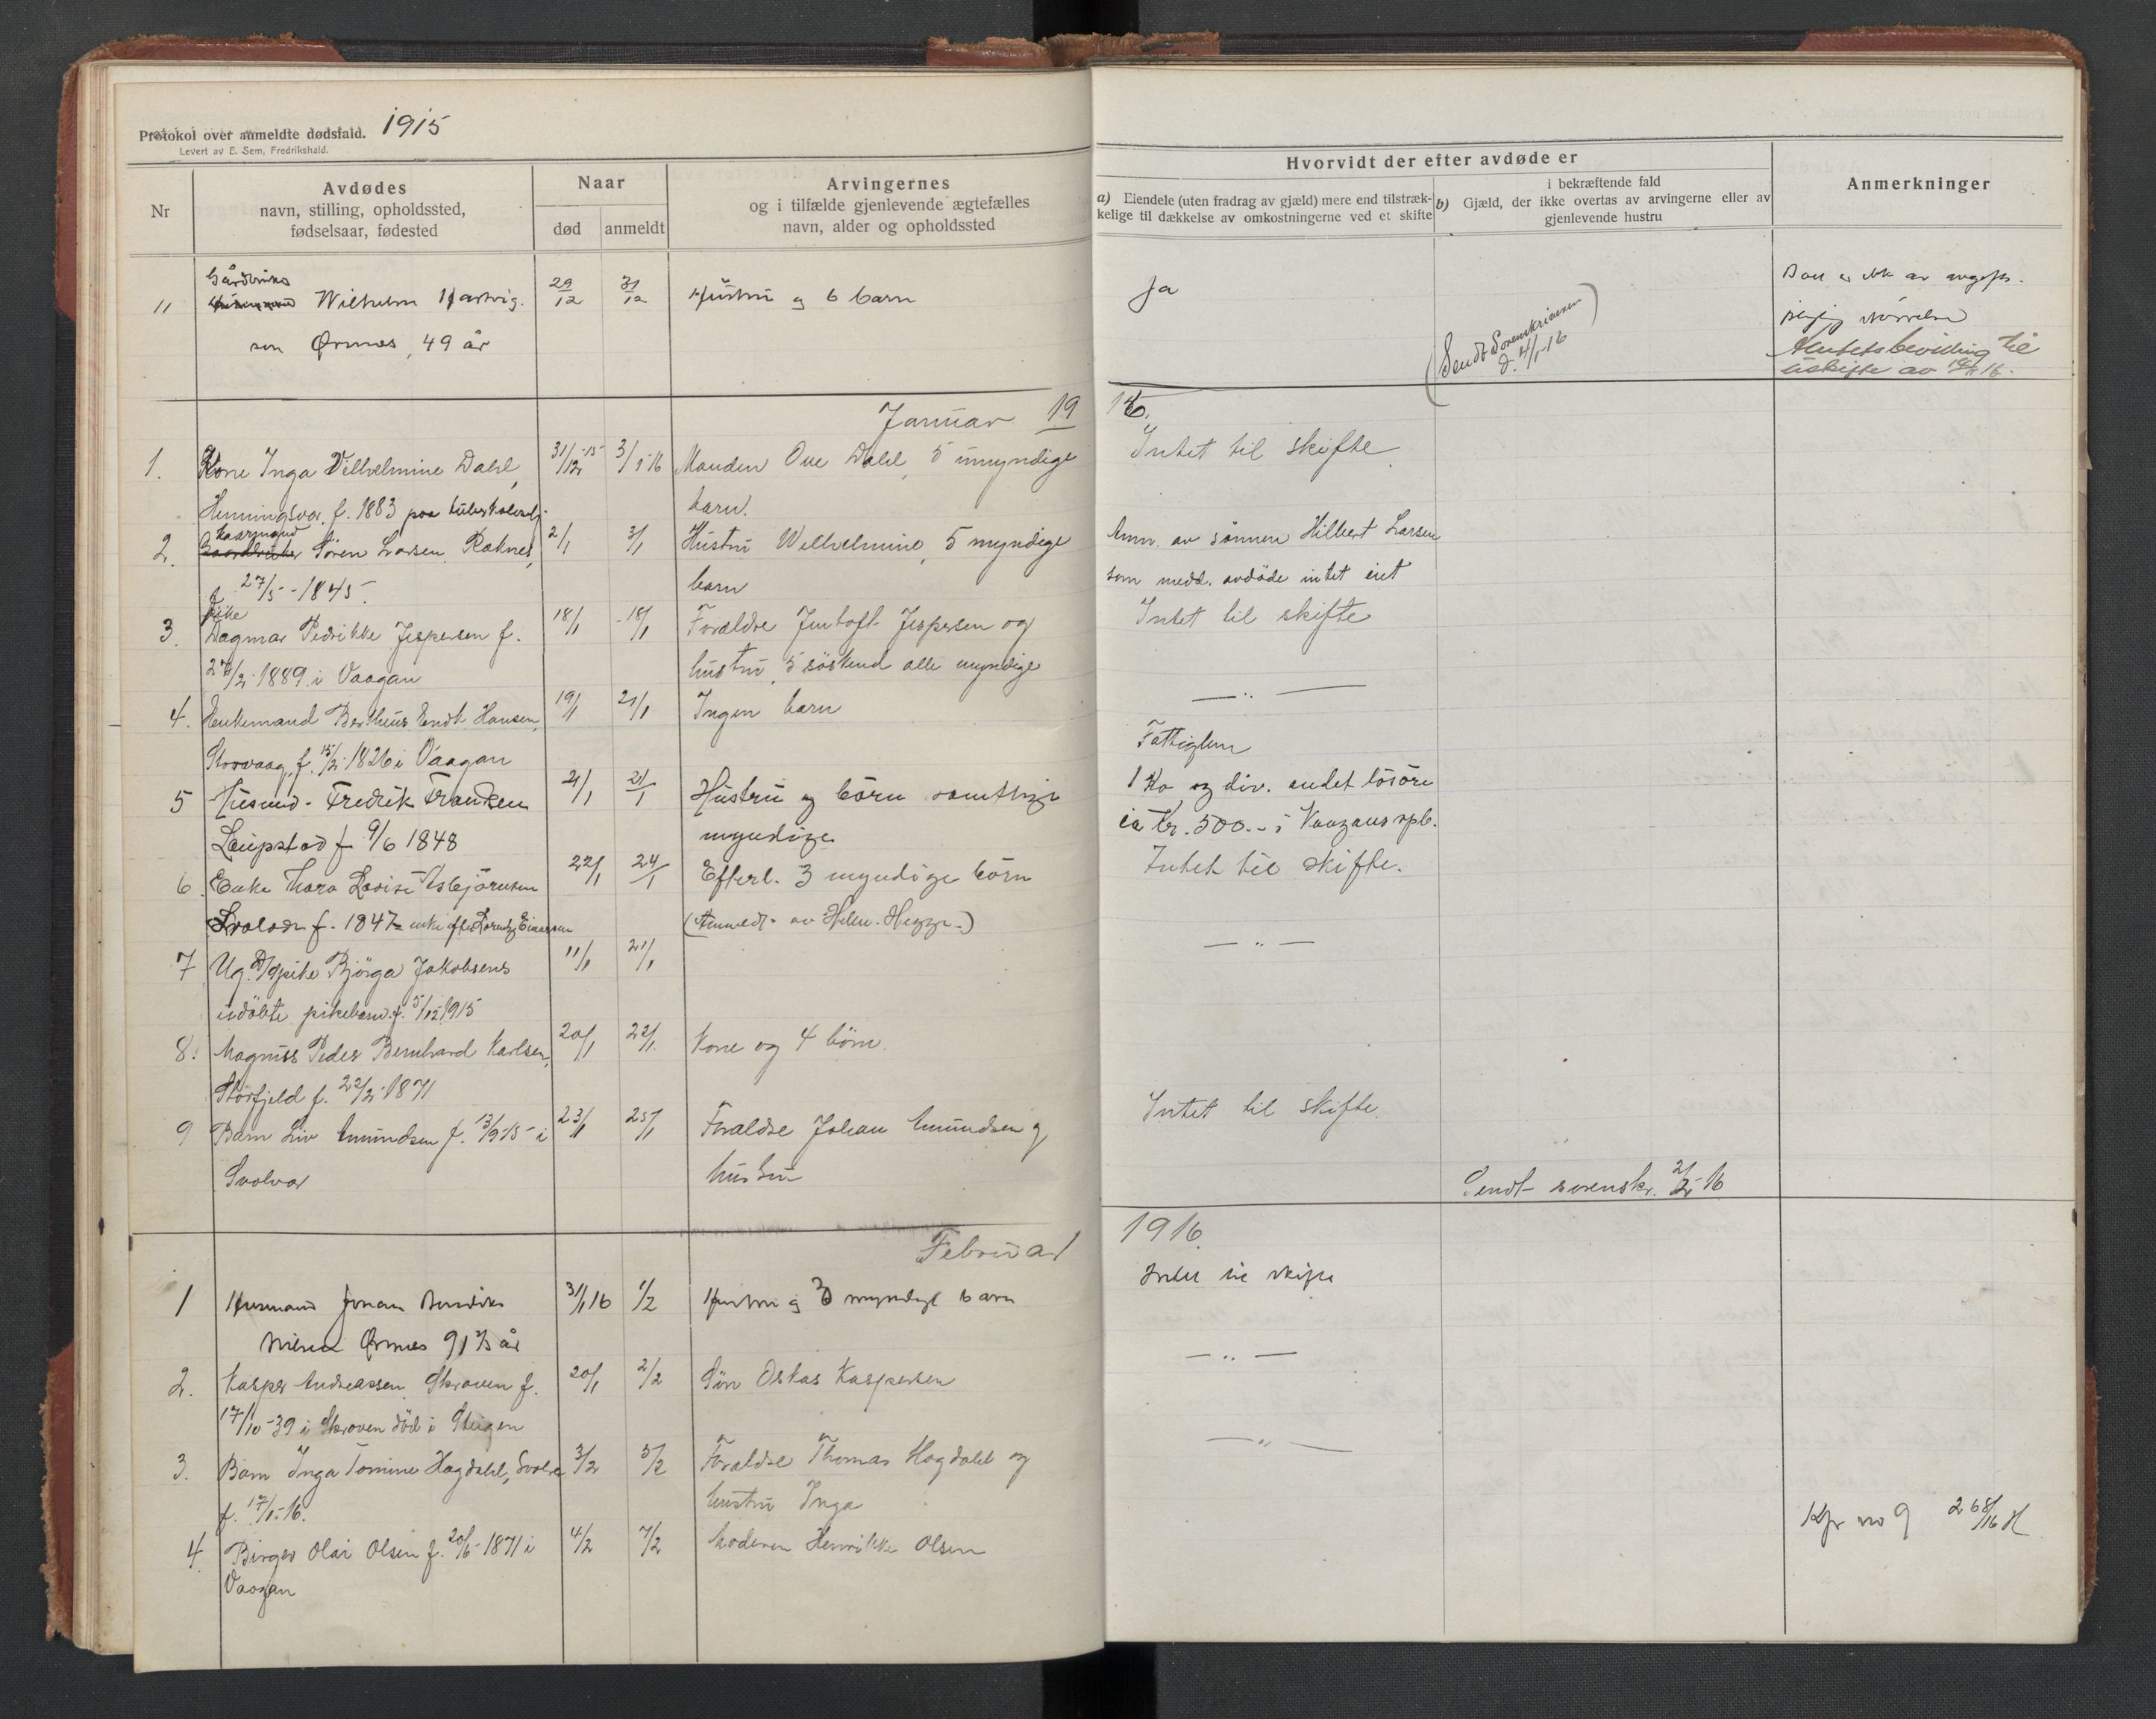 Protokol over anmeldte dødsfald. 1915
Levert av E. Sem, Fredrikshald.
Nr
Avdødes
navn, stilling, opholdssted,
fødselsaar, fødested
Naar
død
anmeldt
Arvingernes
og i tilfælde gjenlevende ægtefælles
navn, alder og opholdssted
11 Gårdbruker Wilhelm Hartvig- 29/12 31/12 Hustru og 6 barn
sen Ørsnes, 49 år
Januar 19
1. Kone Inga Vilhelmine Dahl, 31/12-15 3/1-16 Manden Ove Dahl, 5 umyndige
Henningsvær f. 1883 paa barn.
2. Søren Larsen Raknes, 2/1 3/1 Hustru Wilhelmine, 5 myndige
f. 27/5-1845. barn
3. Pike Dagmar Pedrikke Jespersen f. 18/1 18/1 Forældre Jentoft Jespersen og
1889 i Vaagan hustru, 5 søskend alle myndige
4. Enkemand Berthus Endt Hansen, 19/1 21/1 Ingen barn
Storvaag, f. 15/2-1826 i Vaagan
5 Husmd. Fredrik Frantzen 21/1 21/1 Hustru og børn samtlige
Laupstad f 9/6 1848 myndige
6. Enke Lovise Asbjørnsen 22/1 24/1 Efterl. 3 myndige børn
Svolvær f. 1847 enke efter Einarsen (Anmeldt av Helen. Hegge.)
7 Ug. pike Bjørga Jakobsens 11/1 21/1
udøbte pikebarn f. 5/12 1915
8. Magnus Peder Bernhard Karlsen, 20/1 22/1. Kone og 4 børn.
Storfjeld f. 22/2-1871
9 Barn Liv Amundsen f. 13/9-15 i 23/1 25/1 Forældre Johan Amundsen og
Svolvær hustru
Februar
1 Husmand Johan 31/1 16 1/2 Hustru og 3 myndige barn
Ørsnes år
2. Kasper Andreassen Skroven f. 20/1 2/2 Søn Oskar Kaspersen
17/10-39 i Skroven død i Steigen
3. Barn Inga Tomine Hagdahl, Svolvær 3/2 5/2 Forældre Thomas Hagdahl og
f. 17/1-16. hustru Inga
4. Birger Olai Olsen f. 20/6-1871 i 4/2 7/2 Moderen Henrikke Olsen
Vaagan
Hvorvidt der efter avdøde er
a) Eiendele (uten fradrag av gjæld) mere end tilstræk-
kelige til dækkelse av omkostningerne ved et skifte
i bekræftende fald
b) Gjæld, der ikke overtas av arvingerne eller av
gjenlevende hustru
Anmerkninger
Ja
(Sendt Sorenskriveren
d. 4/1-16)
Boet er ikke av
størrelse
til
uskifte av 16.
16.
Intet til skifte
Anm. av sønnen Hilbert Larsen
som medd. avdøde intet eiet
Intet til skifte
— " —
Fattiglem
1 Ko og div. andet løsøre
ca kr. 500.- i Vaagans spb.
Intet til skifte.
— " —
Intet til skifte.
Sendt sorenskr. 2/2-16
1916.
Intet til skifte
— " —
— " —
no 9